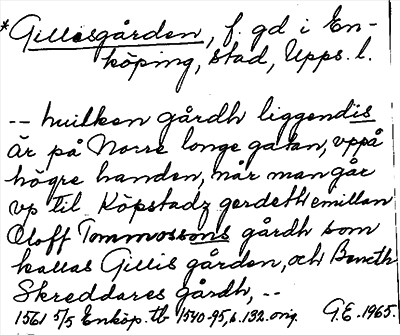 *Gillesgården, f. gd i En-
köping, stad, Upps. l.
-- huilken gårdh liggendis
är på Norre longe gatan, vppå
högre handen, når man går
vp til Köpstadz gerdeth emillan
Oloff Tommossons gårdh som
kallas Gillis gården, och Beneth
Skreddares gårdh, --
1561 5/5 Enköp. tb 1540-95, s. 132. orig. G.E. 1965.